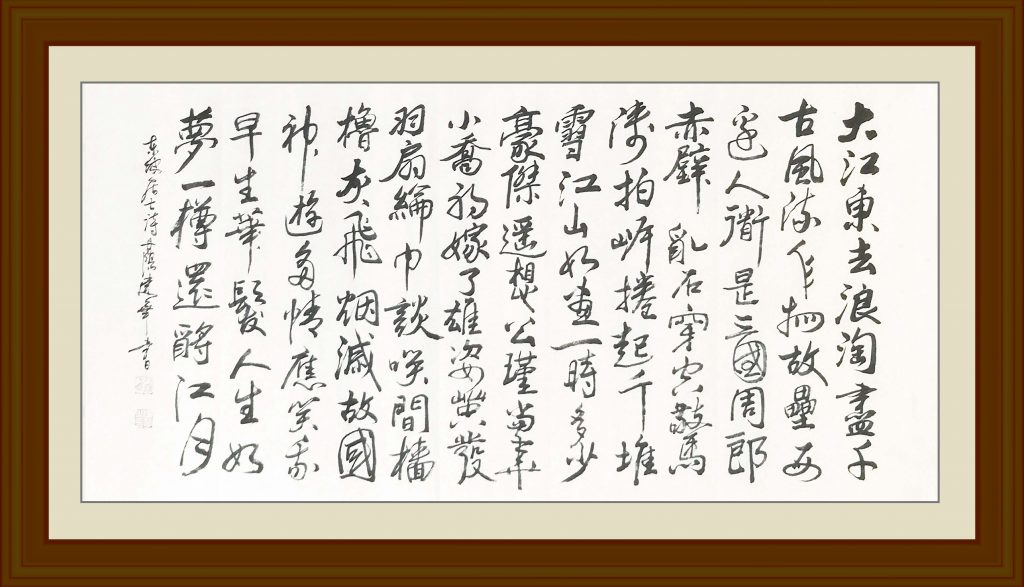 大江東去浪淘盡千
古風流人物故壘西
邊人衟是三國周郎
赤壁亂石穿空驚
濤拍岸捲起千堆
雪江山如畫一時多少
豪傑遥想公瑾當年
小喬初嫁了雄姿英發
羽扇綸巾談笑間檣
櫓灰飛烟滅故國
神遊多情應笑我
早生華髮人生如
夢一樽還酹江月
東坡居士詩 書